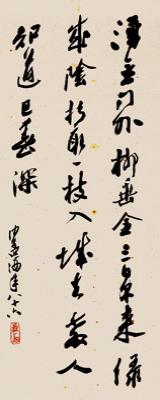 湧金门外柳垂金三日不来绿
成陰折取一枝入城去教人
知道已春深
年八十六